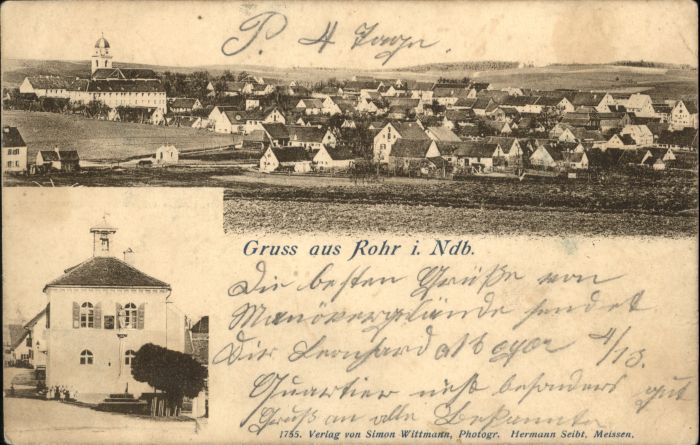 P. 4 Tage.
Gruss aus Rohr i. Ndb.
Die besten Grüße von
Manövergelände sendet
Dir Leonhard
Quartier nicht besonders gut
Gruß an alle Bekannt
1755. Verlag von Simon Wittmann, Photogr. Hermann Seibt, Meissen.